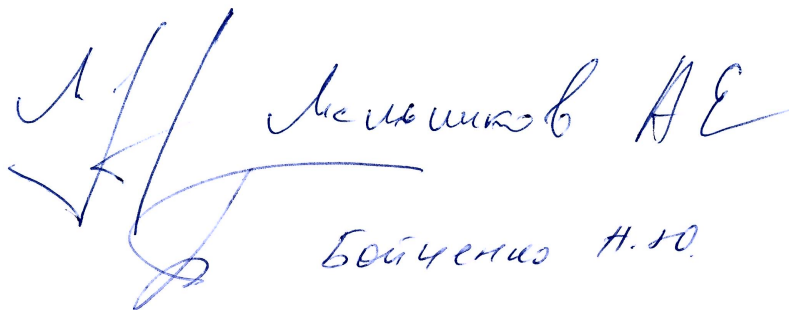 Мельников А Е
Бойченко Н.Ю.